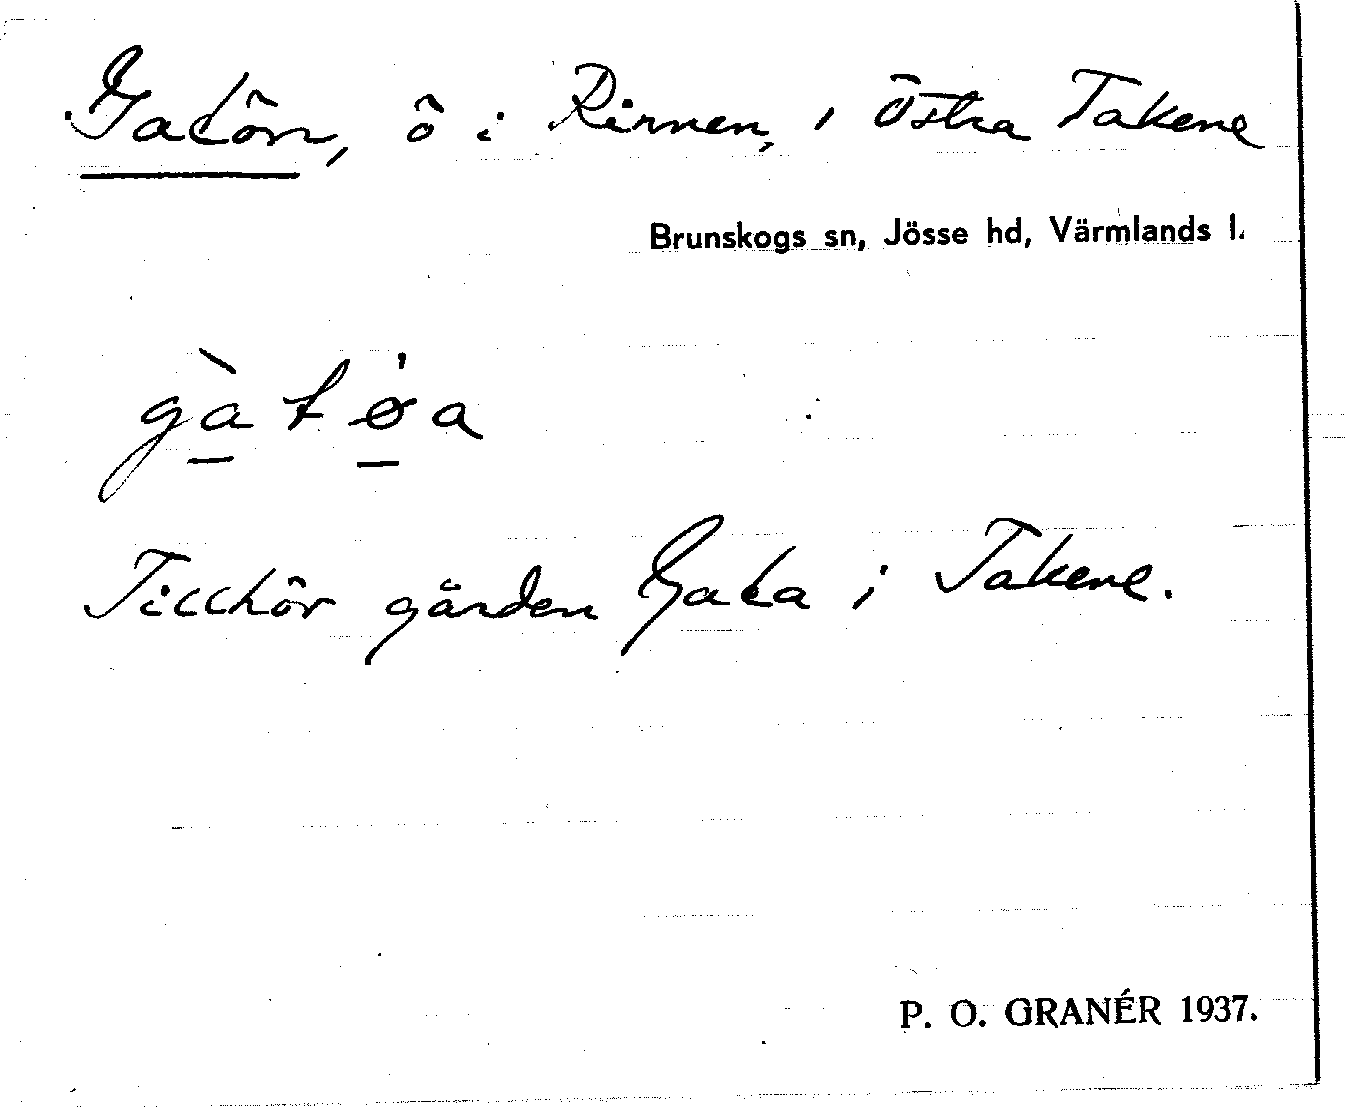 Gatön, ö i Rinnen, i Östra Takene
Brunskogs sn, Jösse hd, Värmlands l.
gàtø̀a
Tillhör gården Gata i Takene.
P. O. GRANÉR 1937.